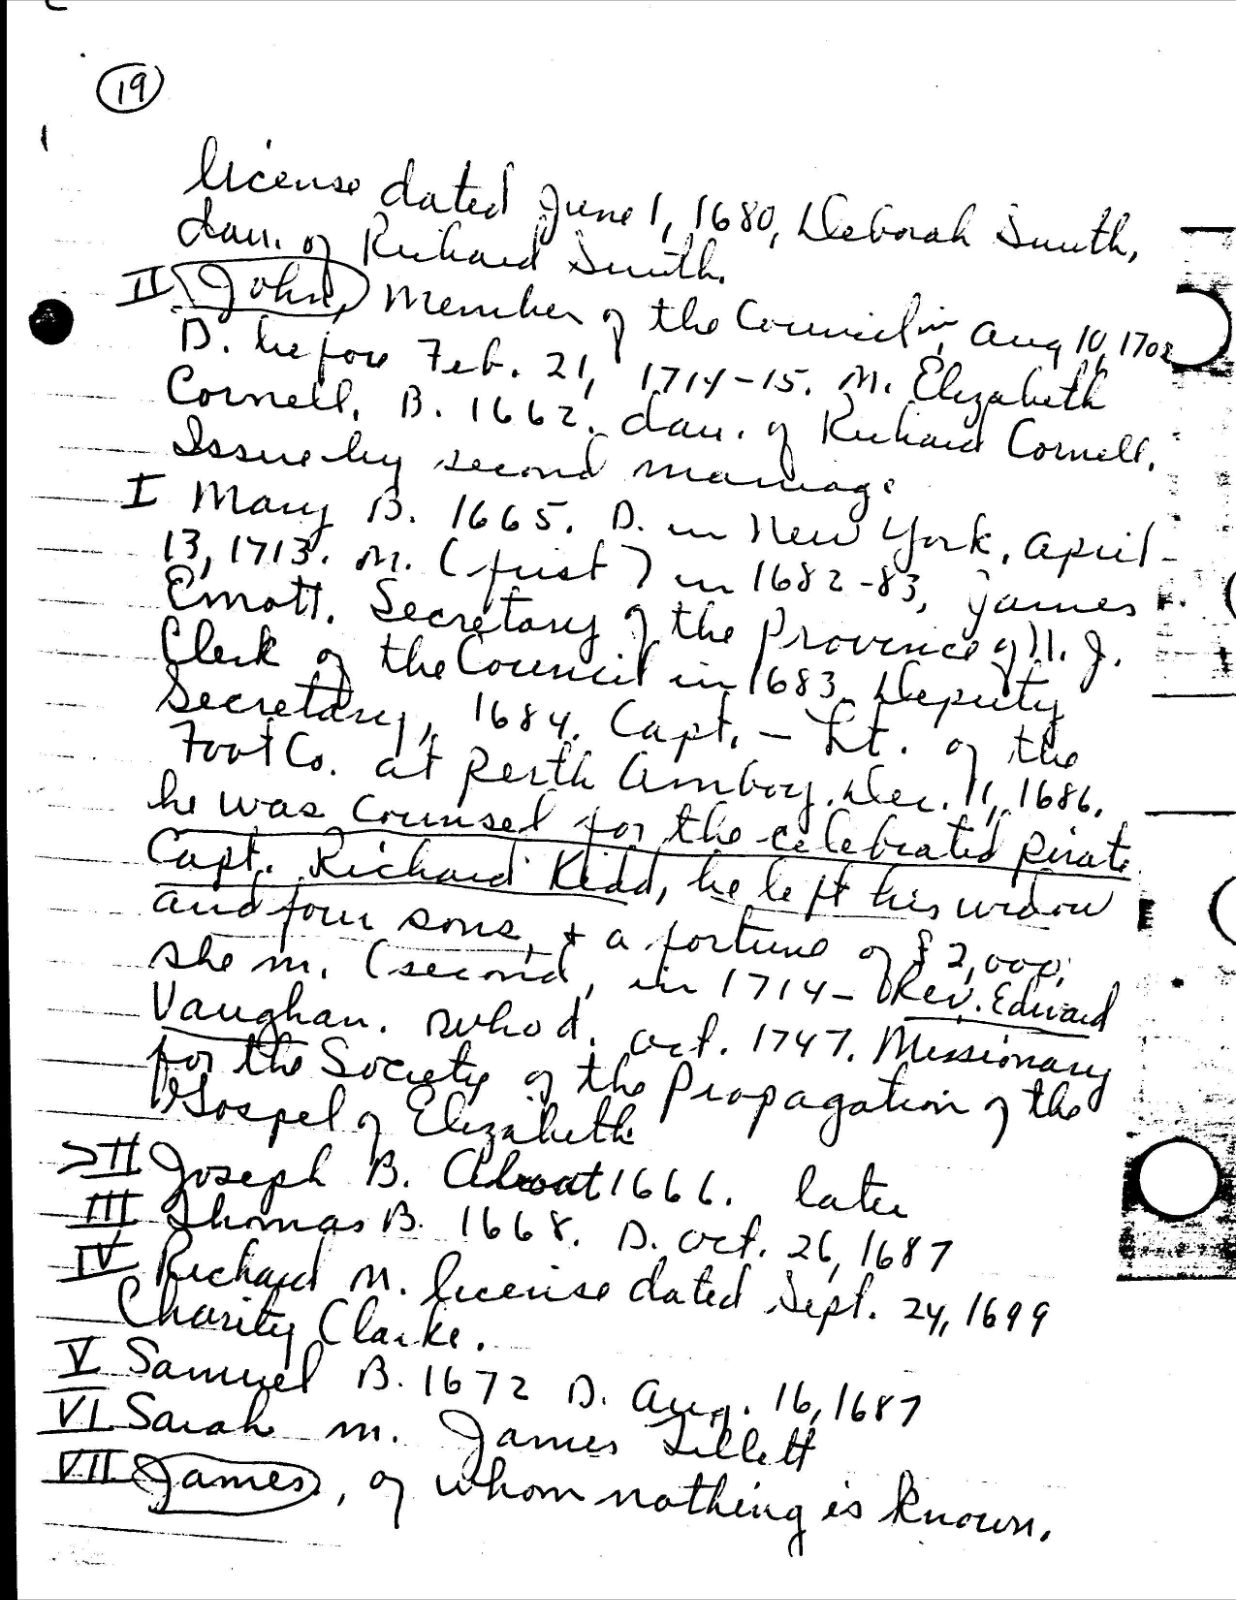 19
license dated June 1, 1680, Deborah Smith,
dau. of Richard Smith.
II John, Member of the Council in Aug 10, 1702
D. before Feb. 21, 1714-15. M. Elizabeth
Cornell, B. 1662, dau. of Richard Cornell.
Issue by second marriage
I Mary B. 1665. D. in New York, April
13, 1713. M. (first) in 1682-83, James
Emott. Secretary of the Province of N. J.
Clerk of the Council in 1683. Deputy
Secretary, 1684. Capt. - Lt. of the
Foot Co. at Perth Amboy. Dec. 11, 1686.
he was Counsel for the celebrated pirate
Capt. Richard Kidd, he left his widow
and four sons, + a fortune of £2,000,
she m. (second, in 1714- Rev. Edward
Vaughan. who d. Oct. 1747. Missionary
for the Society of the Propagation of the
Gospel of Elizabeth.
>II Joseph B. About 1666. later
III Thomas B. 1668. D. Oct. 26, 1687
IV Richard M. license dated Sept. 24, 1699
Charity Clarke.
V Samuel B. 1672 D. Aug. 16, 1687
VI Sarah m. James Tillett
VII James, of whom nothing is known.